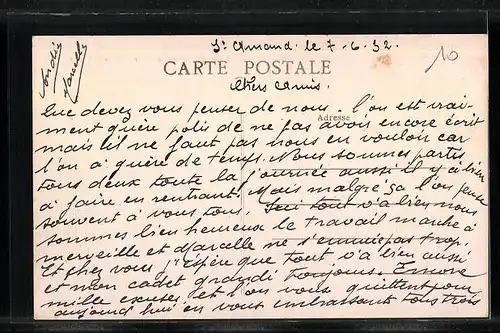 St Amand. le 7-6-32.
10
CARTE POSTALE
Chers Amis.
Que devez vous penser de nous. l'on est vrai-
Adresse
ment guère polis de ne pas avoir encore écrit
mais il ne faut pas nous en vouloir car
l'on a guère de temps. Nous sommes partis
tous deux toute la journée aussi il y a bien
à faire en rentrant. Mais malgré ça l'on pense
souvent à vous tous. Ici tout va bien nous
sommes bien heureux le travail marche à
merveille et Marcelle ne s'ennuie pas trop.
Et chez vous, j'espère que tout va bien aussi
et mon cadet grandi toujours. Encore
mille excuses et l'on vous quittent pour
aujourd'hui en vous embrassant tous trois